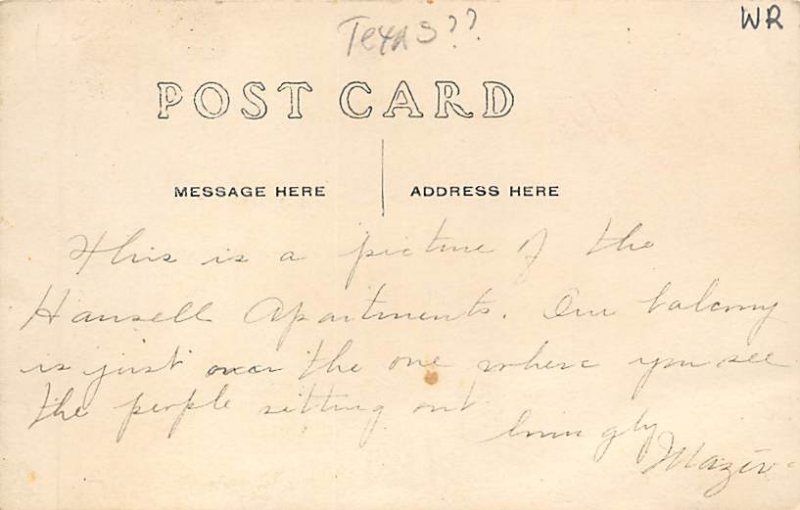 Texas??
WR
POST CARD
MESSAGE HERE
ADDRESS HERE
This is a picture of the
Hansell Apartments. Our balcony
is just over the one where you see
the people sitting out.
Lovingly